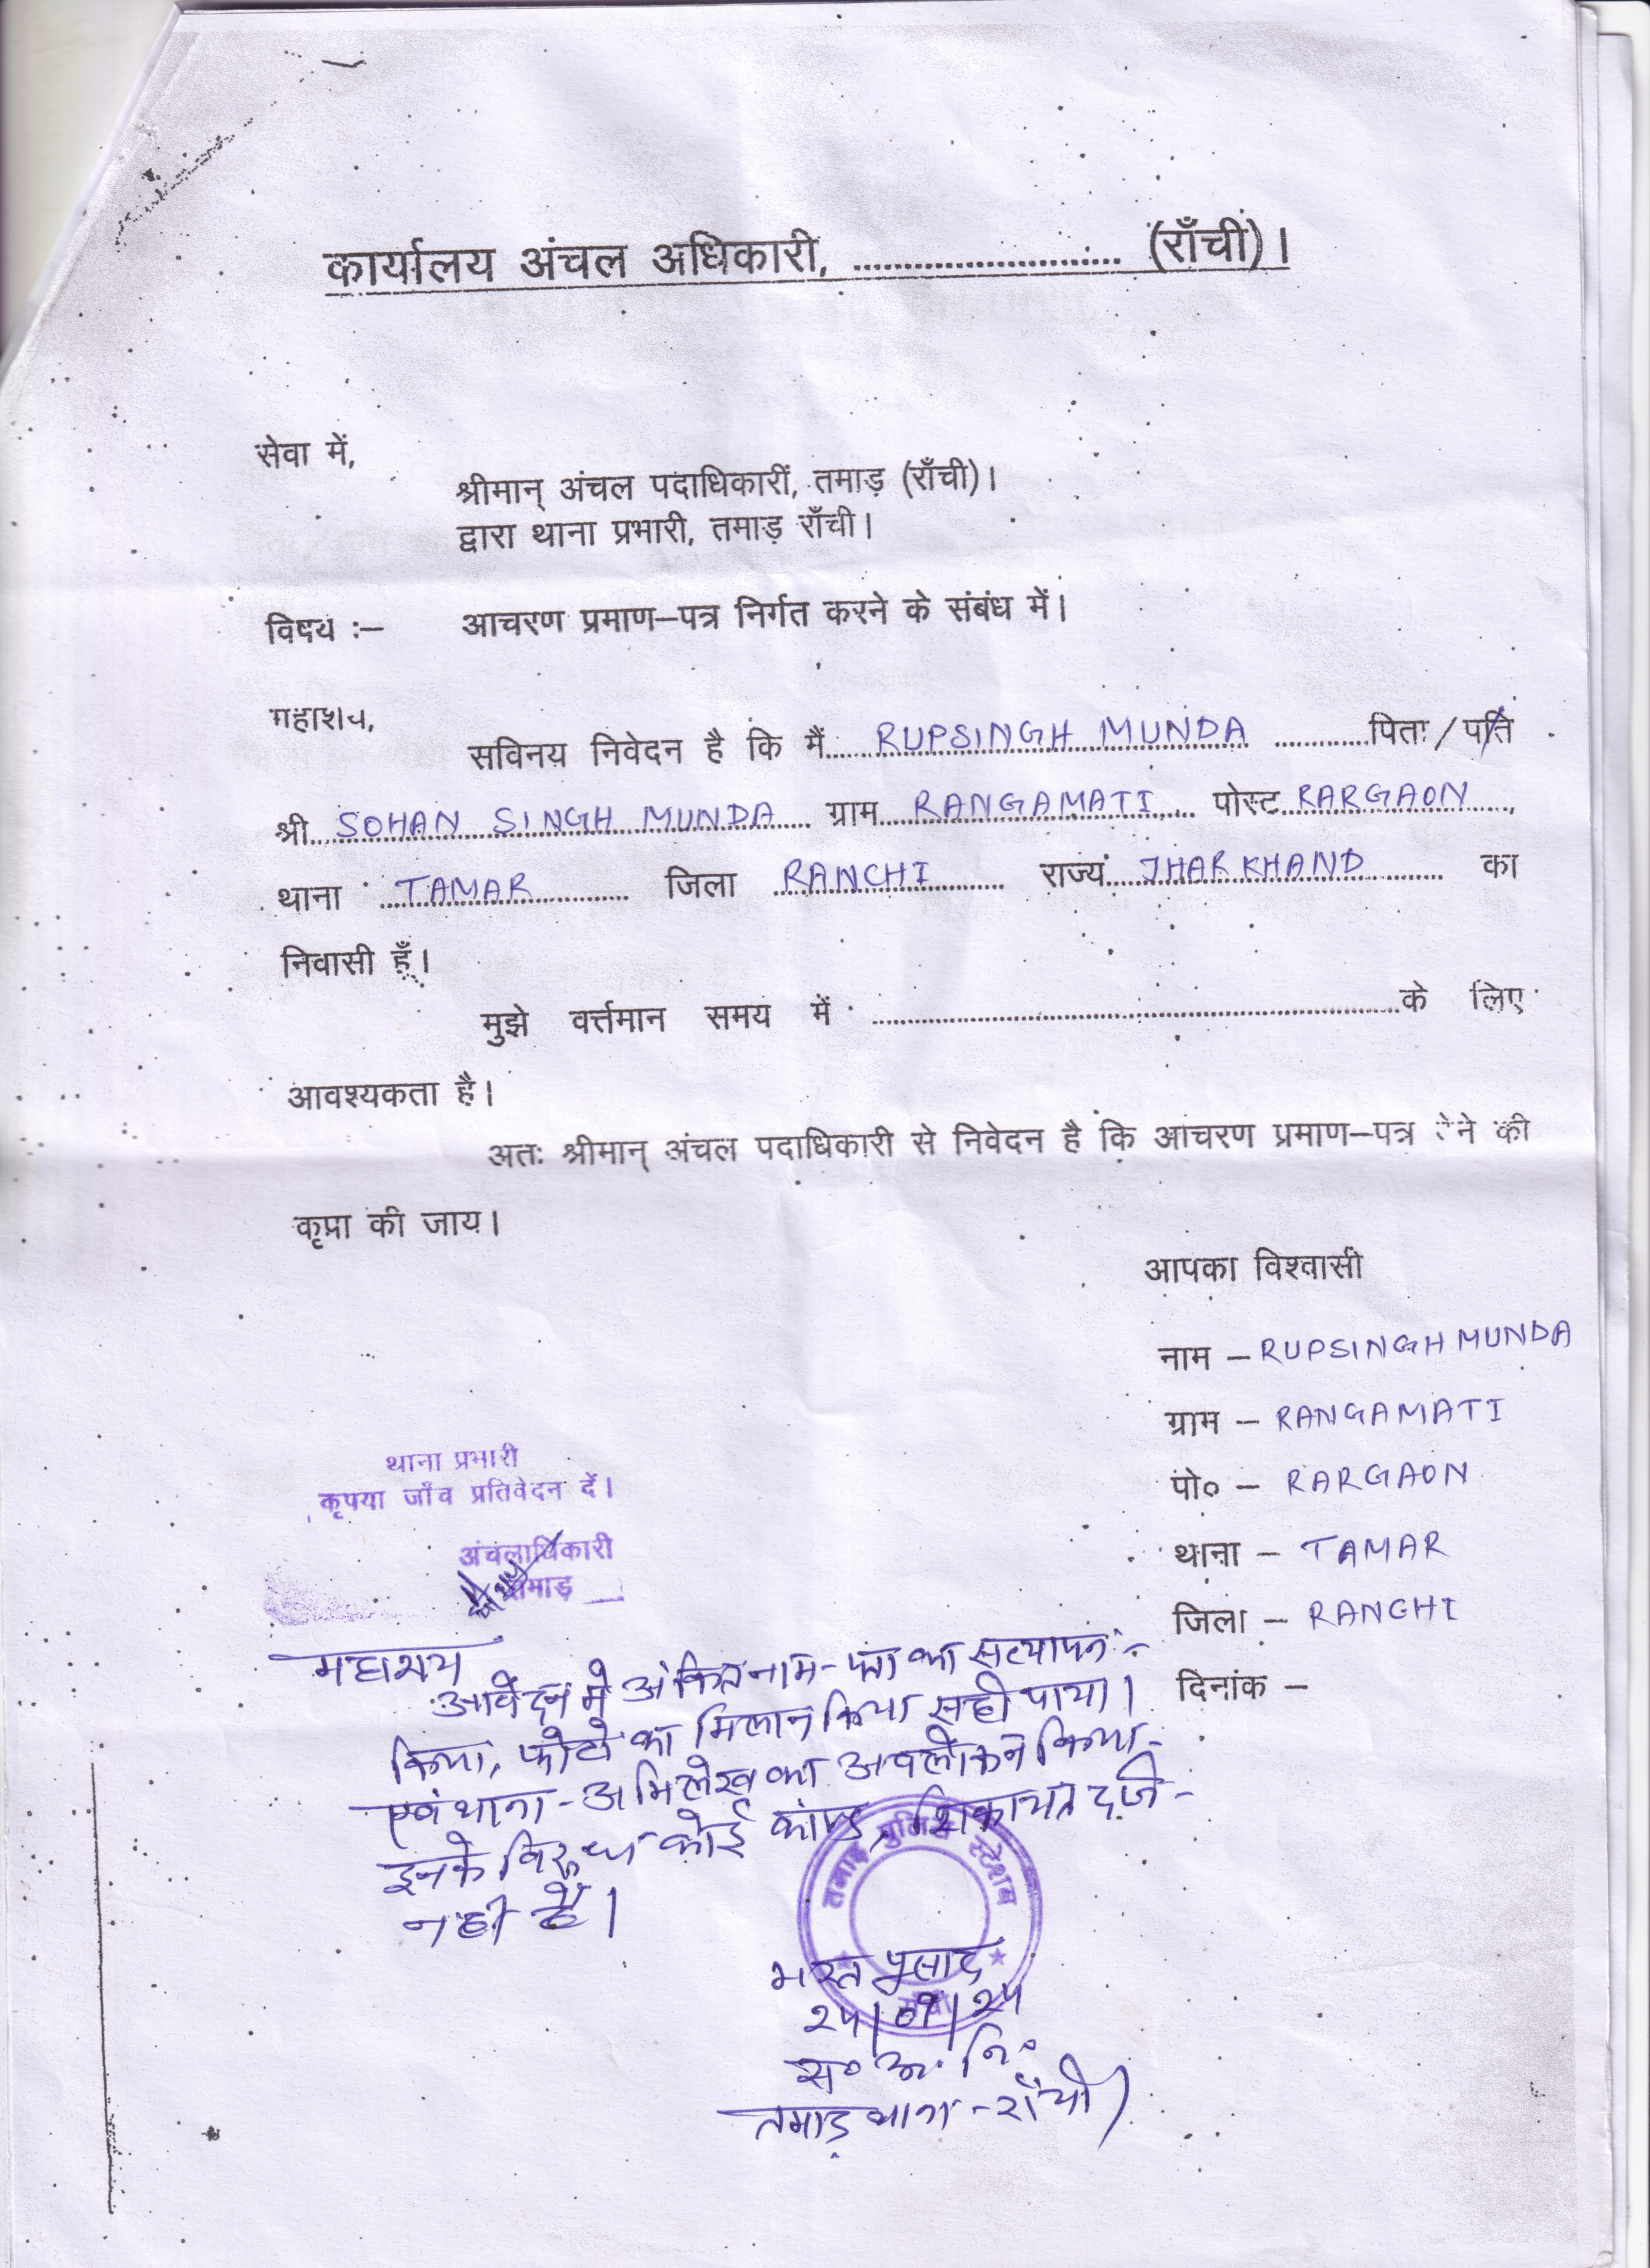 कार्यालय अंचल अधिकारी, ........................... (राँची)।
सेवा में,
श्रीमान् अंचल पदाधिकारीं, तमाड़ (राँची)।
द्वारा थाना प्रभारी, तमाड़ राँची।
विषय :– आचरण प्रमाण–पत्र निर्गत करने के संबंध में।
महाशय,
सविनय निवेदन है कि मैं RUPSINGH MUNDA पिता / पति
श्री SOHAN SINGH MUNDA ग्राम RANGAMATI पोस्ट RARGAON,
थाना TAMAR जिला RANCHI राज्य JHARKHAND का
निवासी हूँ।
मुझे वर्त्तमान समय में ........................... के लिए
आवश्यकता है।
अतः श्रीमान् अंचल पदाधिकारी से निवेदन है कि आचरण प्रमाण–पत्र देने की
कृपा की जाय।
आपका विश्वासी
नाम – RUPSINGH MUNDA
ग्राम – RANGAMATI
पो० – RARGAON
थाना – TAMAR
जिला – RANCHI
दिनांक –
थाना प्रभारी
कृपया जाँच प्रतिवेदन दें।
अंचलाधिकारी
तमाड़
महाशय
आवेदन मे अंकित नाम - पता का सत्यापन -
किया, फोटो का मिलान किया सही पाया।
एवं थाना - अभिलेख का अवलोकन किया -
इनके विरूध कोई काण्ड, शिकायत दर्ज -
नही है।
तमाड़ पुलिस स्टेशन
राँची
भरत प्रसाद
२५/०१/२५
स० अ. नि०
तमाड़ थाना - राँची